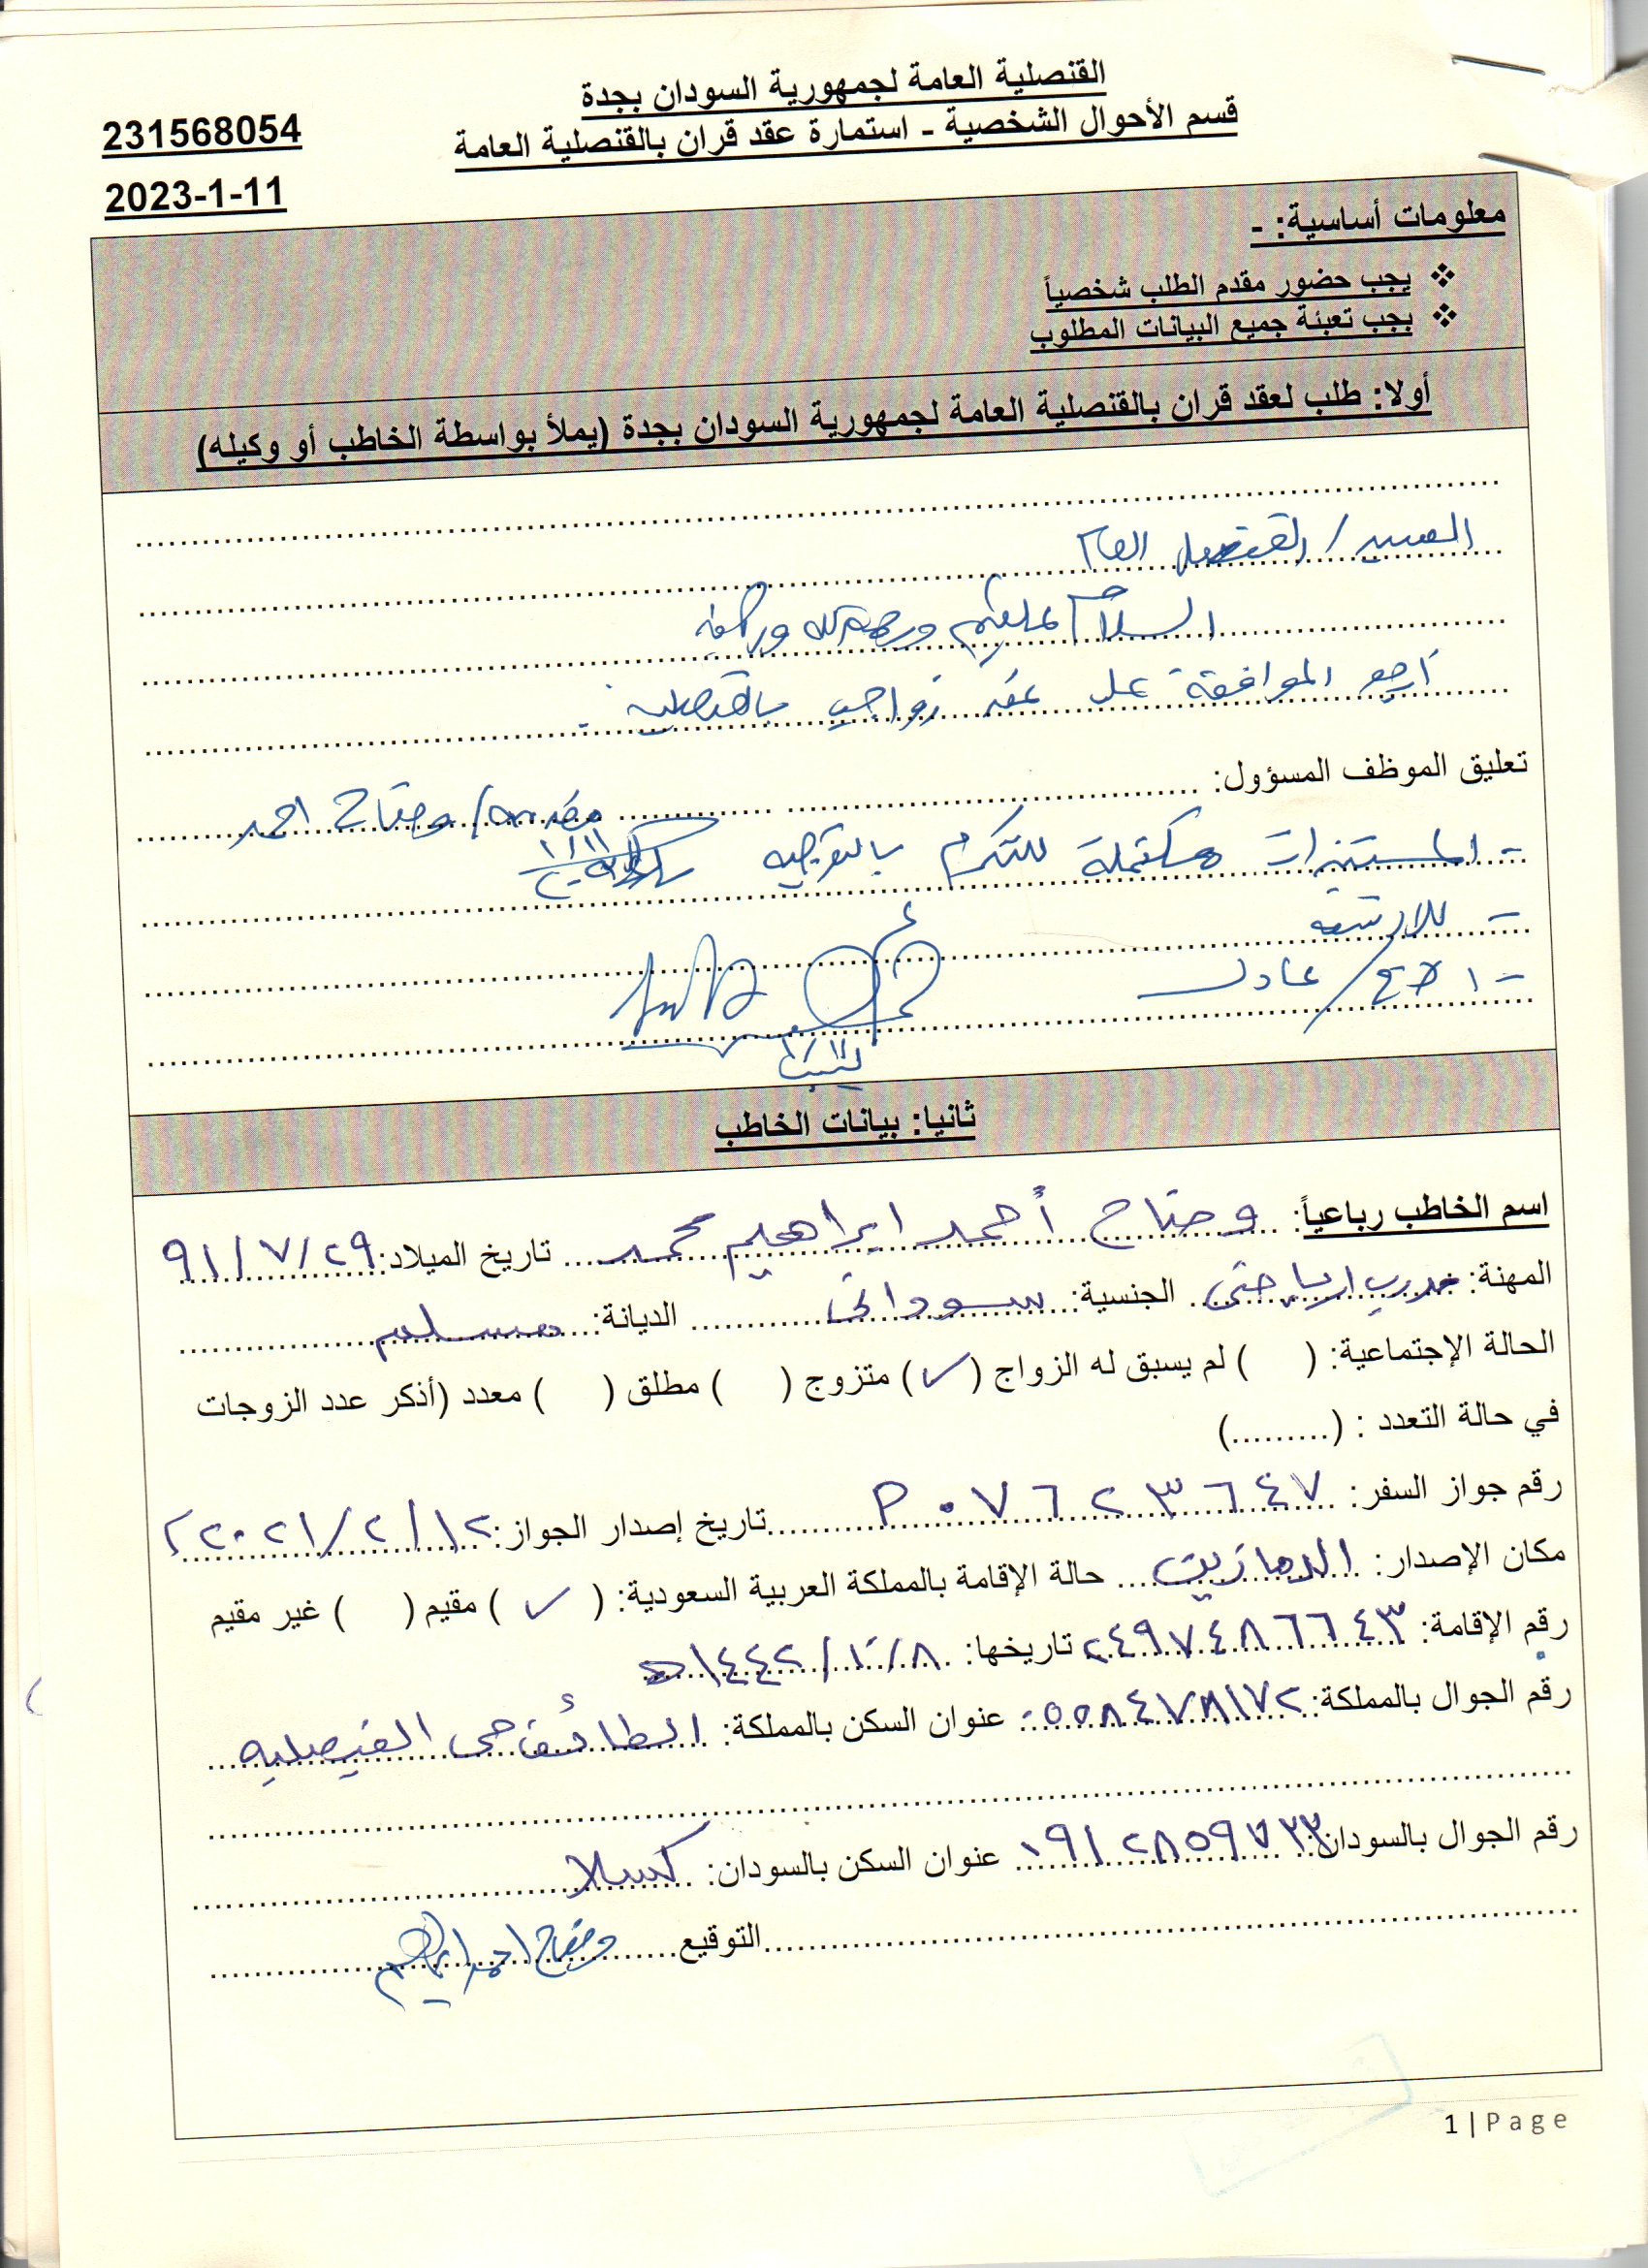 القنصلية العامة لجمهورية السودان بجدة
قسم الأحوال الشخصية - استمارة عقد قران بالقنصلية العامة
231568054
2023-1-11
معلومات أساسية: -
❖ يجب حضور مقدم الطلب شخصياً
❖ يجب تعبئة جميع البيانات المطلوب
أولا: طلب لعقد قران بالقنصلية العامة لجمهورية السودان بجدة (يملأ بواسطة الخاطب أو وكيله)
السيد / القنصل العام
السلام عليكم ورحمة الله وبركاته
أرجو الموافقة على عقد زواجي بالقنصلية .
تعليق الموظف المسؤول: وضاح احمد
- المستندات مكتملة للتكرم بالتوجيه
- للأرشفة
- عادل
ثانيا: بيانات الخاطب
اسم الخاطب رباعياً: وضاح أحمد ابراهيم محمد تاريخ الميلاد: ٩١/٧/٢٩
المهنة: الجنسية: سوداني الديانة: مسلم
الحالة الإجتماعية: ( ) لم يسبق له الزواج (✓) متزوج ( ) مطلق ( ) معدد (أذكر عدد الزوجات
في حالة التعدد : (.........)
رقم جواز السفر: P٠٧٦٢٣٦٤٧ تاريخ إصدار الجواز: ٢٠٢١/٢/١٢
مكان الإصدار: الدمازين حالة الإقامة بالمملكة العربية السعودية: ( ✓ ) مقيم ( ) غير مقيم
رقم الإقامة: ٢٤٩٧٤٨٦٦٤٣ تاريخها: ١٤٤٢/١٠/٨ه
رقم الجوال بالمملكة: ٠٥٥٨٤٧٨١٧٢ عنوان السكن بالمملكة: الطائف حي الفيصليه
رقم الجوال بالسودان: ٠٩١٢٨٥٩٧٣٣ عنوان السكن بالسودان: كسلا
التوقيع وضاح احمد ابراهيم
1 | Page